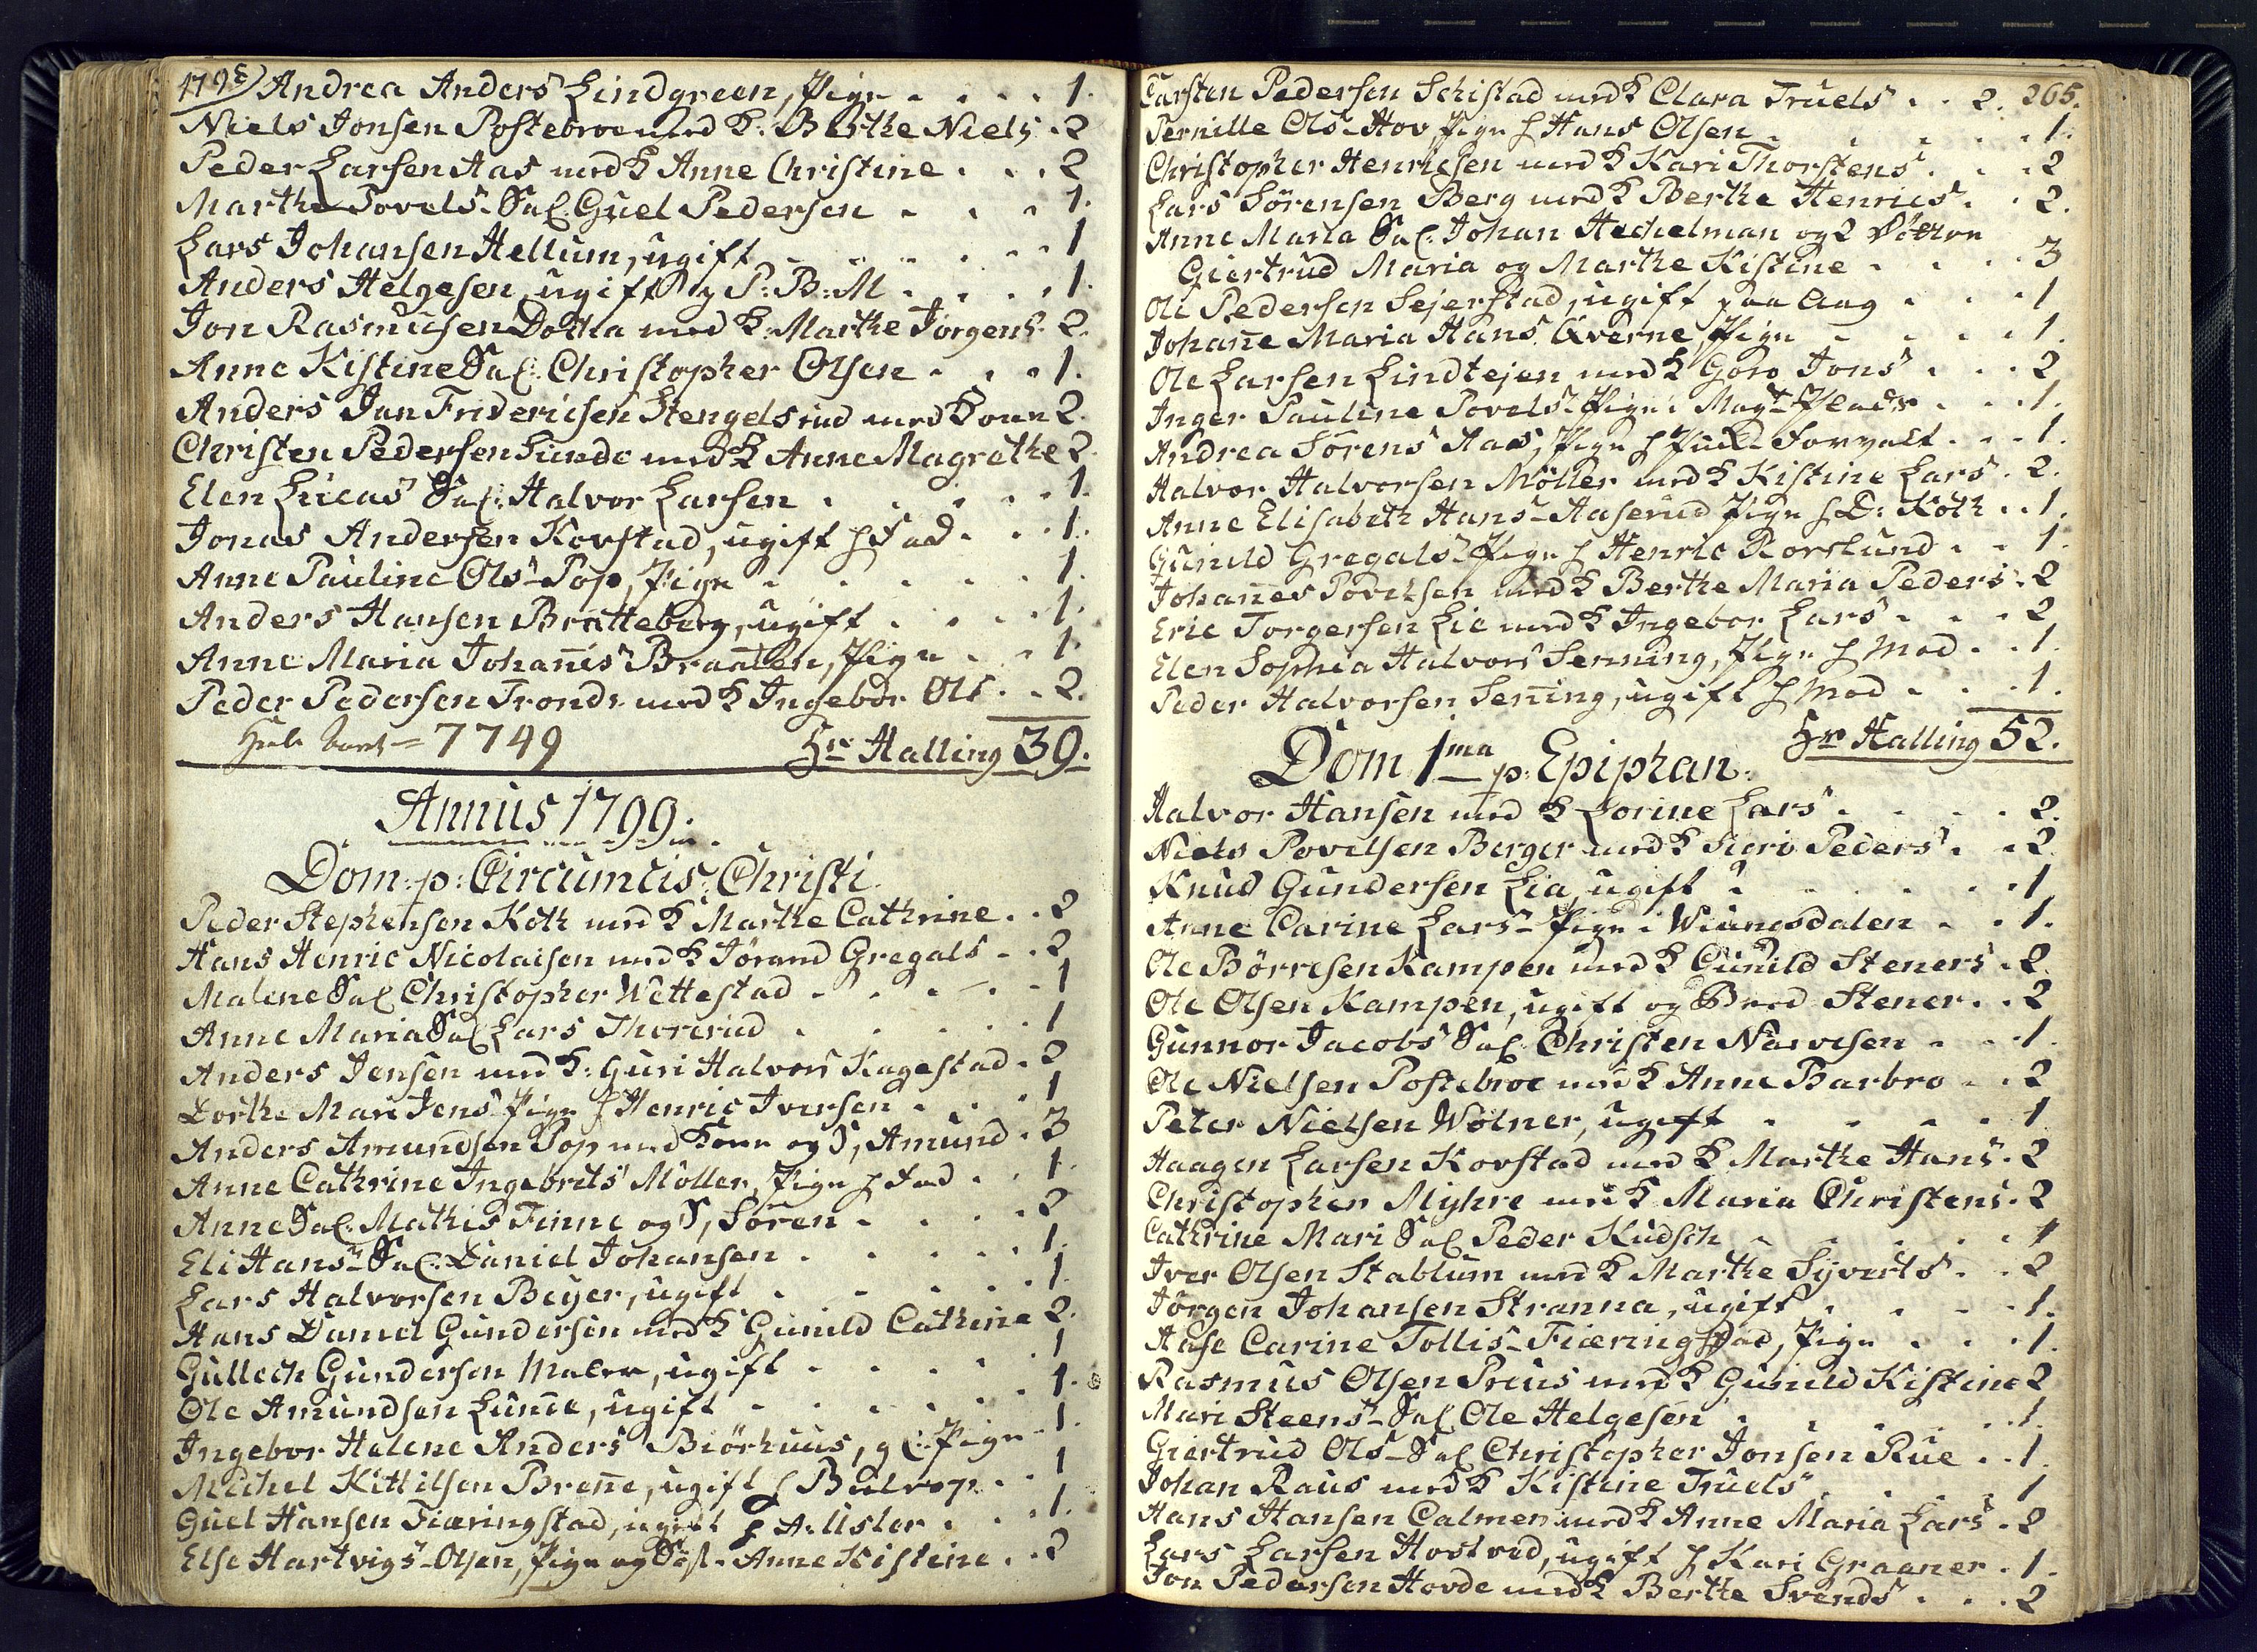 1798) Andrea Anders Lindgreen, Pige . . . . 1.
Niels Jonsen Postebroe med K: Berthe Niels . 2
Peder Larsen Aas med K Anne Christine . . . 2
Marthe Povels Sal. Guel Pedersen . . . 1.
Lars Johansen Hellum, ugift . . . . . 1
Anders Helgesen, ugift P: B: M . . . . 1.
Jon Rasmusen Dotka med K: Marthe Jorgens 2.
Anne Kistine Sal: Christopher Olsen . . . 1.
Anders Jan Fridericsen Stengelsrud med Kone 2.
Christen Pedersen Lunde med K Anne Magrethe 2.
Elen Lucas Sal: Halvor Larsen . . . . 1.
Jonas Andersen Korstad, ugift h Fad . . . 1.
Anne Pauline Ols Pop, Pige . . . . . 1.
Anders Hansen Bratteberg, ugift . . . . 1.
Anne Maria Johanis Braaten, Pige . . . 1.
Peder Pedersen Tronds med K Ingebor Ols . . 2.
7749 Hr Halling 39.
Annus 1799.
Dom: p: Circumcis: Christi
Peder Stephensen Koth med K Marthe Cathrine . . 2
Hans Henric Nicolaisen med K Jörand Gregals . . 2
Malene Sal Christopher Wettestad . . . . . 1
Anne Maria Sal Lars Thorerud . . . . . 1
Anders Jensen med K: Guri Halvors Kagestad . 2
Dorthe Mari Jens Pige h Henric Iversen . . . 1
Anders Amundsen Pop med Kone og S, Amund . 3
Anne Cathrine Ingebrets Möller, Pige h Fad . . 1.
Anne Sal. Mathis Finne og S, Sören . . . . 2
Eli Hans Sal: Daniel Johansen . . . . . 1.
Lars Halvorsen Beyer, ugift . . . . . 1.
Hans Daniel Gundersen med K Gunild Cathrine 2.
Gullech Gundersen Maler, ugift . . . . 1
Ole Amundsen Lunde, ugift . . . . . 1.
Ingebor Helene Anders Biörhuus, gl: Pige . 1.
Michel Kittilsen Brene, ugift h Bulrop . . 1
Guel Hansen Fiæringstad, ugift h A: Usler . . 1.
Else Hartvigs Olsen, Pige og Söst. Anne Kistine . . 2
Carsten Pedersen Schistad med K Clara Truels . . 2. 265.
Pernille Ols Hov Pige h Hans Olsen . . . . 1.
Christopher Henricsen med K Kari Thorstens . . . 2
Lars Sörensen Berg med K Berthe Henrics . . 2.
Anne Maria Sal: Johan Hechelman og 2 Döttre
Giertrud Maria og Marthe Kistine . . . . 3
Ole Pedersen Sejerstad, ugift paa Aag . . . 1
Johane Maria Hans Qverne, Pige . . . . 1.
Ole Larsen Lindtejen med K Goro Jons . . . 2
Inger Pauline Povels Pige i . . . 1.
Andrea Sörens Aas, Pige h Forvalt . . . 1.
Halvor Halvorsen Möller med K Kistine Lars . 2.
Anne Elisabeth Hans Aaserud Pige h D: Koth . . 1.
Gunild Gregals Pige h Henric Rorslund . . 1.
Johanes Povelsen med K Berthe Maria Peders . 2
Eric Torgersen Lie med K Ingebor Lars . . . 2
Elen Sophia Halvors Senning, Pige h Mod . . 1.
Peder Halvorsen Sening, ugift h Mod . . . 1.
Hr Halling 52.
Dom 1ma p: Epiphan.
Halvor Hansen med K Lorine Lars . . . . 2.
Niels Povelsen Berger med K Siri Peders . . 2
Knud Gundersen Lia, ugift . . . . . 1
Anne Carine Lars Pige i Wiungsdalen . . 1.
Ole Börresen Kampen med K Gunild Steners . 2
Ole Olsen Kampen, ugift og Brod Stener . . 2
Gunnor Jacobs Sal. Christen Narvesen . . 1.
Ole Nielsen Postebroe med K Anne Barbro . . 2
Peter Nielsen Wölner, ugift . . . . . 1
Haagen Larsen Korstad med K Marthe Hans . 2
Christopher Myhre med K Maria Christens . 2
Cathrine Mari Sal Peder Kudsch . . . . 1
Iver Olsen Stablum med K Marthe Syverts . . 2
Jörgen Johansen Stranna, ugift . . . . 1.
Aase Carine Tollis Fiæringstad, Pige . . . 1.
Rasmus Olsen Prius med K Gunild Kistine 2
Mari Steens Sal Ole Helgesen . . . . 1.
Giertrud Ols Sal Christopher Jonsen Rue . . 1.
Johan Raus med K Kistine Truels . . . . 1
Hans Hansen Calmer med K Anne Maria Lars . 2
Lars Larsen Hostved, ugift h Kari Graaner . 1.
Jon Pedersen Hovde med K Berthe Svends . . . 2